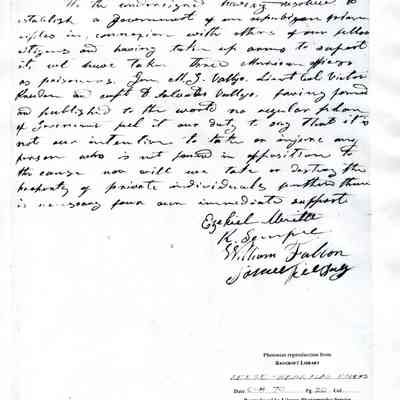 We the undersigned having resolved to
establish a Government of on republican princ
iples in connexion with others of our fellow
citizens and having taken up arms to support
it we have taken three Mexican officers
as prisoners. Gen M. G. Vallejo. Lieut Col Victor
and capt D. Salvador Vallejo. having formed
and published to the world no regular plan
of feel it our duty to say that it is
not our intention to take or injure any
person who is not found in opposition to
the cause nor will we take or destroy the
property of private individuals further than
is necessary for our own immediate support
Ezekiel Merritt
R. Semple
William Fallon
Samuel
Photostat reproduction from
BANCROFT LIBRARY
Date